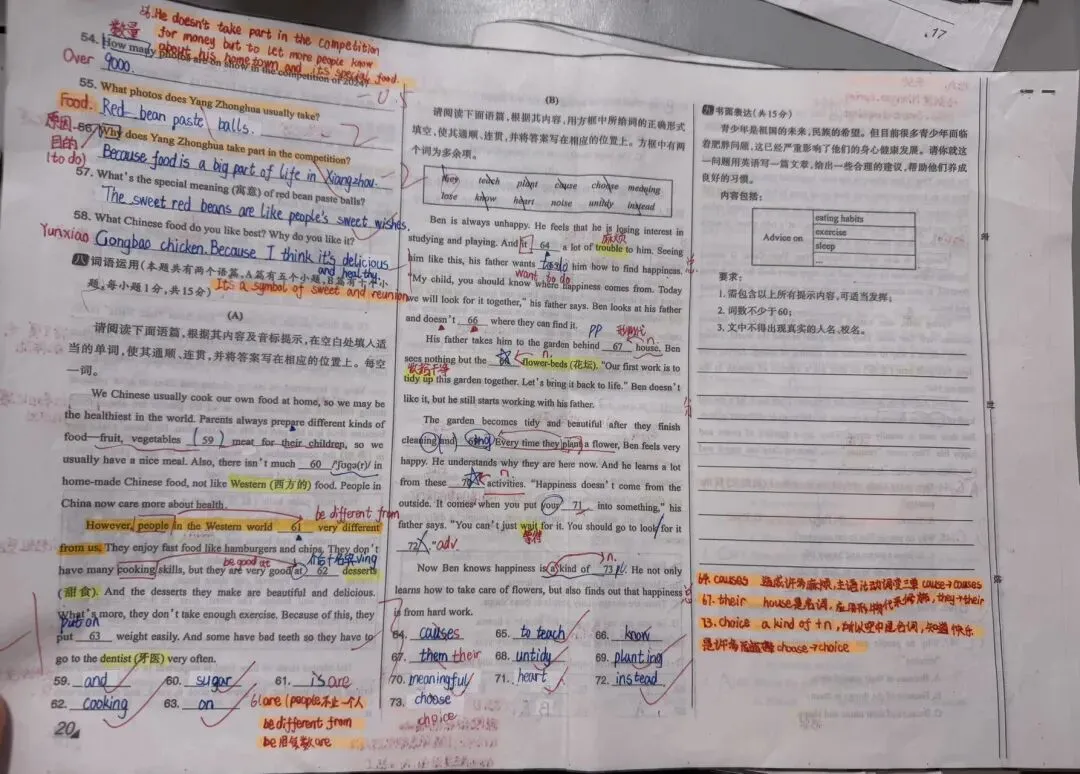 56. He doesn't take part in the competition
for money but to let more people know
about his hometown and its special food.
数量
54. How many photos are on show in the competition of 2024?
Over 9000.
55. What photos does Yang Zhonghua usually take?
Food. Red bean paste balls.
原因
目的
(to do)
56. Why does Yang Zhonghua take part in the competition?
Because food is a big part of life in Xiangzhou.
57. What's the special meaning (寓意) of red bean paste balls?
The sweet red beans are like people's sweet wishes.
58. What Chinese food do you like best? Why do you like it?
Yunxiao Gongbao chicken. Because I think it's delicious
and healthy.
It's a symbol of sweet and reunion
八 词语运用(本题共有两个语篇,A篇有五个小题,B篇有十个小
题,每小题1分,共15分)
(A)
请阅读下面语篇,根据其内容及音标提示,在空白处填入适
当的单词,使其通顺、连贯,并将答案写在相应的位置上。每空
一词。
We Chinese usually cook our own food at home, so we may be
the healthiest in the world. Parents always prepare different kinds of
food—fruit, vegetables 59 meat for their children, so we
usually have a nice meal. Also, there isn't much 60 /ˈʃʊɡə(r)/ in
home-made Chinese food, not like Western (西方的) food. People in
China now care more about health.
be different from
However, people in the Western world 61 very different
from us. They enjoy fast food like hamburgers and chips. They don't
be good at
have many cooking skills, but they are very good at 62 desserts
(甜食). And the desserts they make are beautiful and delicious.
What's more, they don't take enough exercise. Because of this, they
put on
put 63 weight easily. And some have bad teeth so they have to
go to the dentist (牙医) very often.
59. and 60. sugar 61. is are
62. cooking 63. on
61. are (people不止一个人
be different from
be用复数are
20
(B)
请阅读下面语篇,根据其内容,用方框中所给词的正确形式
填空,使其通顺、连贯,并将答案写在相应的位置上。方框中有两
个词为多余项。
they teach plant cause choose meaning
lose know heart noise untidy instead
Ben is always unhappy. He feels that he is losing interest in
studying and playing. And it 64 a lot of trouble to him. Seeing
him like this, his father wants 65 him how to find happiness.
want to do
"My child, you should know where happiness comes from. Today
we will look for it together," his father says. Ben looks at his father
and doesn't 66 where they can find it.
His father takes him to the garden behind 67 house. Ben
sees nothing but the 68 flower-beds (花坛). "Our first work is to
tidy up this garden together. Let's bring it back to life." Ben doesn't
like it, but he still starts working with his father.
The garden becomes tidy and beautiful after they finish
cleaning and 69 . Every time they plant a flower, Ben feels very
happy. He understands why they are here now. And he learns a lot
from these 70 activities. "Happiness doesn't come from the
outside. It comes when you put your 71 into something," his
father says. "You can't just wait for it. You should go to look for it
等待
72 ." adv.
Now Ben knows happiness is a kind of 73 . He not only
learns how to take care of flowers, but also finds that happiness
is from hard work.
64. causes 65. to teach 66. know
67. them their 68. untidy 69. planting
70. meaningful 71. heart 72. instead
73. choose
choice
九 书面表达(共15分)
青少年是祖国的未来,民族的希望。但目前很多青少年面临
着肥胖问题,这已经严重影响了他们的身心健康发展。请你就这
一问题用英语写一篇文章,给出一些合理的建议,帮助他们养成
良好的习惯。
内容包括:
Advice on
eating habits
exercise
sleep
...
要求:
1. 需包含以上所有提示内容,可适当发挥;
2. 词数不少于60;
3. 文中不得出现真实的人名、校名。
64. causes 造成许多麻烦,主语it动词变三单 cause→causes
67. their house是名词,应用形物代来修饰,they→their
73. choice a kind of +n, 所以空中是名词,知道快乐
是许多 choose→choice
.17